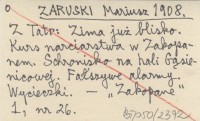 o ZARUSKI Mariusz 1908.
Z Tatr: Zima już blisko.
Kurs narciarstwa w Zakopa-
nem. Schronisko na hali Gąsie-
nicowej. Fałszywe alarmy.
Wycieczki. — „Zakopane"
1, nr. 26.